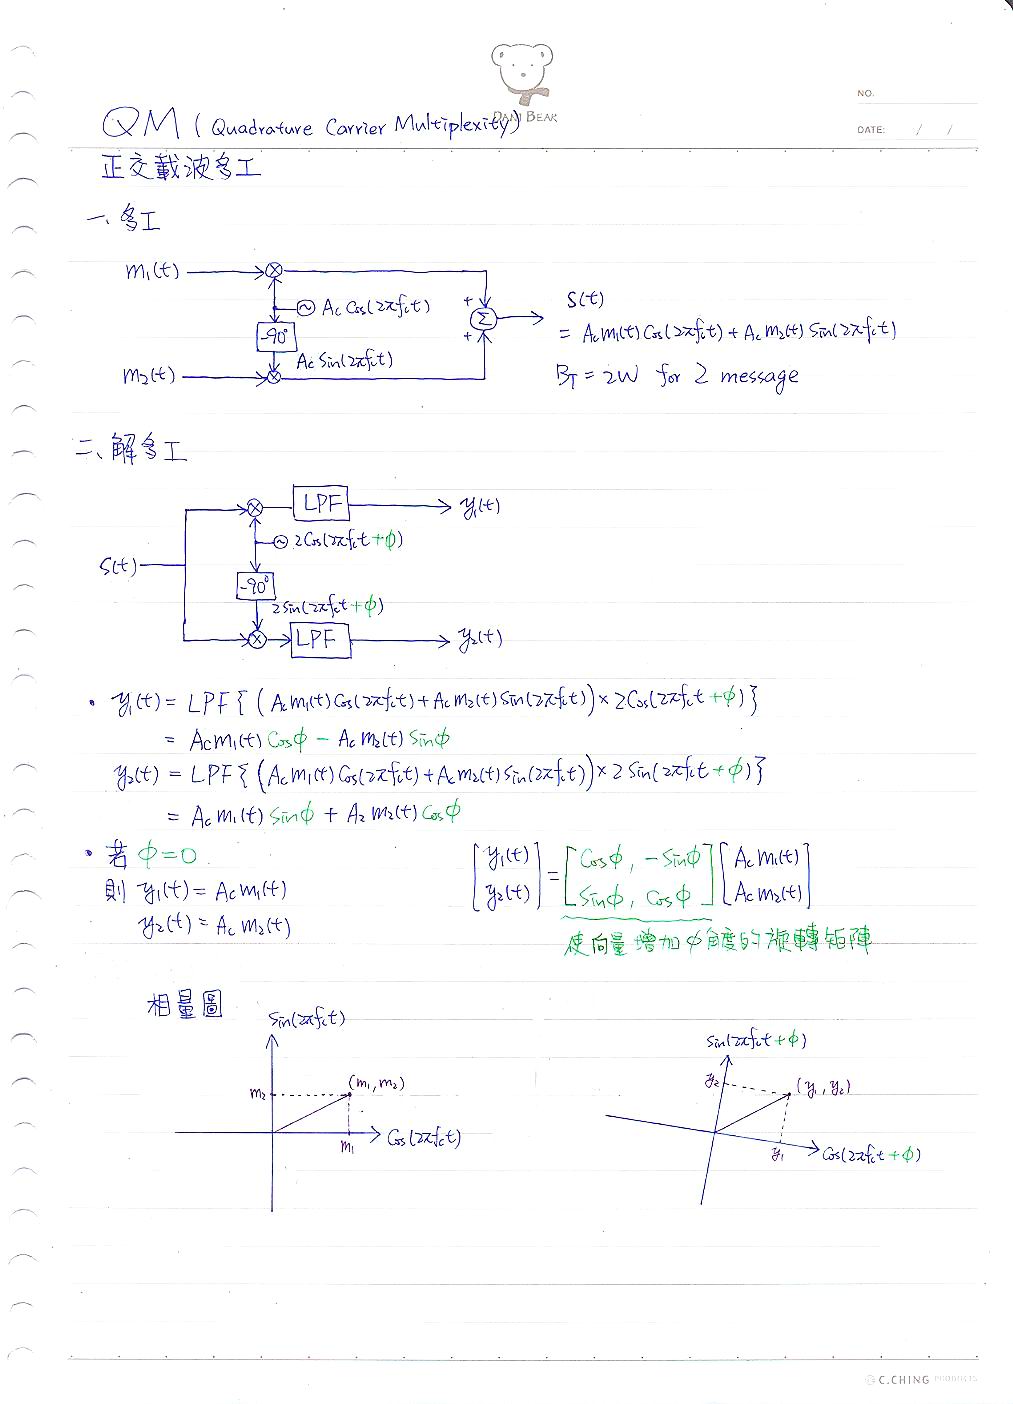 DANI BEAR
NO.
QM (Quadrature Carrier Multiplexity)
DATE: / /
正交載波多工
一、多工
m₁(t)
~ Ac Cos(2πfct)
-90°
Ac Sin(2πfct)
m₂(t)
+
Σ
+
S(t)
= Ac m₁(t) Cos(2πfct) + Ac m₂(t) Sin(2πfct)
B_T = 2W for 2 message
二、解多工
LPF
y₁(t)
~ 2Cos(2πfct+φ)
S(t)
-90°
2Sin(2πfct+φ)
LPF
y₂(t)
• y₁(t) = LPF{(Ac m₁(t) Cos(2πfct) + Ac m₂(t) Sin(2πfct)) × 2Cos(2πfct+φ)}
= Ac m₁(t) Cosφ - Ac m₂(t) Sinφ
y₂(t) = LPF{(Ac m₁(t) Cos(2πfct) + Ac m₂(t) Sin(2πfct)) × 2 Sin(2πfct+φ)}
= Ac m₁(t) Sinφ + A₂ m₂(t) Cosφ
• 若 φ=0
則 y₁(t) = Ac m₁(t)
y₂(t) = Ac m₂(t)
[y₁(t)] = [Cosφ, -Sinφ] [Ac m₁(t)]
[y₂(t)] [Sinφ, Cosφ] [Ac m₂(t)]
使向量增加φ角度的旋轉矩陣
相量圖
Sin(2πfct)
m₂
(m₁, m₂)
Cos(2πfct)
m₁
Sin(2πfct+φ)
y₂
(y₁, y₂)
y₁
Cos(2πfct+φ)
C.CHING PRODUCTS